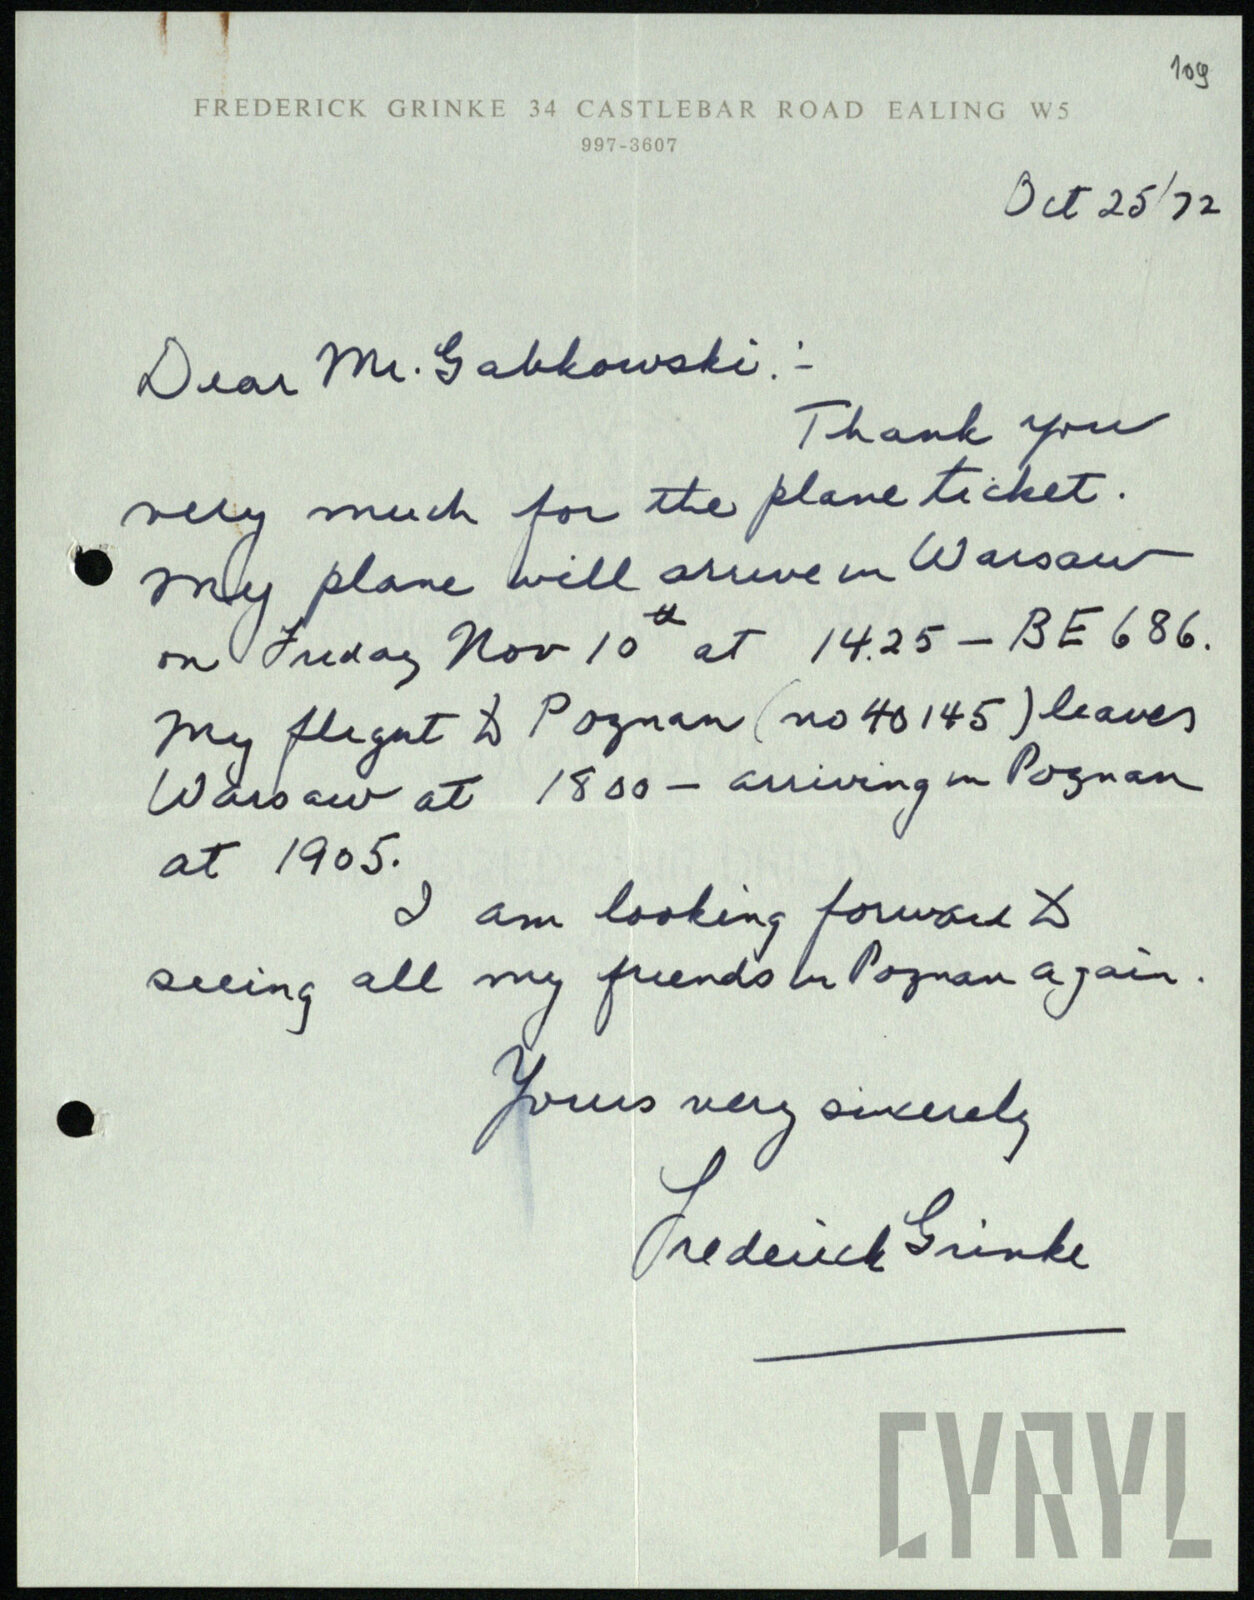 109
FREDERICK GRINKE 34 CASTLEBAR ROAD EALING W5
997-3607
Oct 25/72
Dear Mr. Gabkowski:-
Thank you
very much for the plane ticket.
My plane will arrive in Warsaw
on Friday Nov 10th at 14.25 – BE 686.
My flight to Poznan (no 40145) leaves
Warsaw at 1800 – arriving in Poznan
at 1905.
I am looking forward to
seeing all my friends in Poznan again.
Yours very sincerely
Frederick Grinke
CYRYL